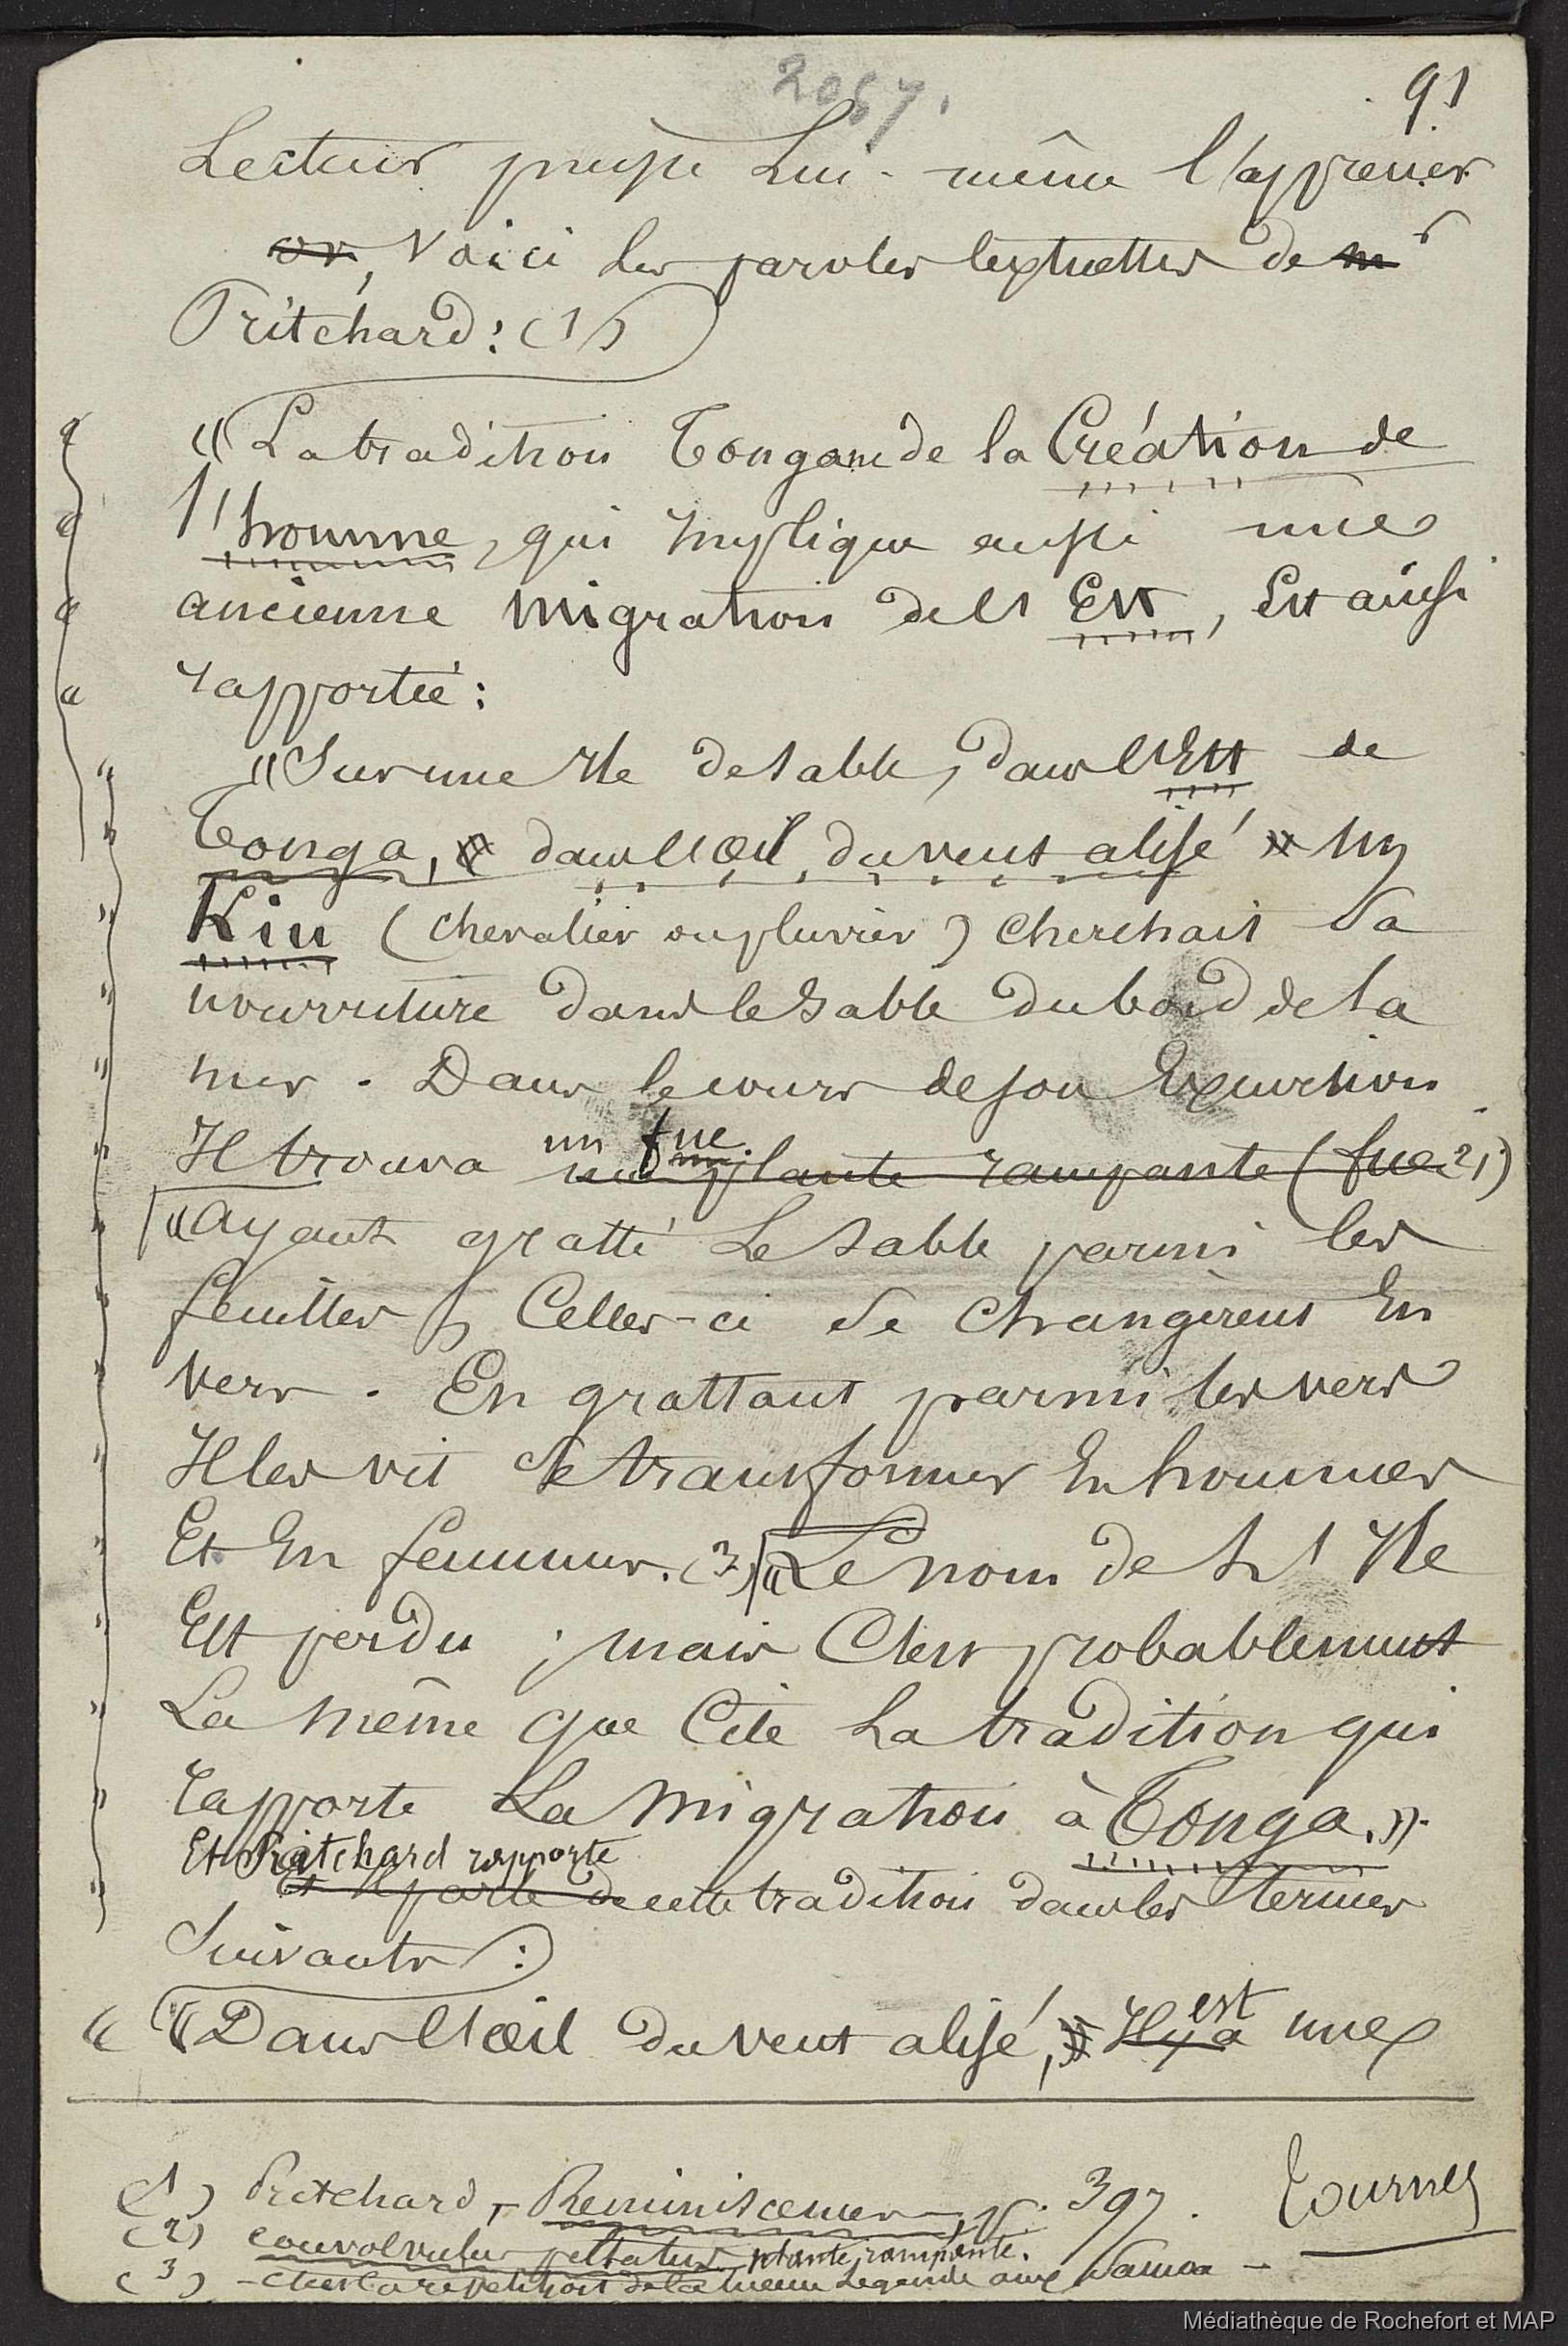 2067.
91
Lecteur puisse Lui-même l'apprécier
or, Voici les paroles textuelles de mr
Pritchard: (1)
"La tradition Tongane de la Création de
l'homme, qui implique aussi une
ancienne migration de l'Est, Est ainsi
rapportée:
"Sur une Ile de sable, dans l'Est de
Tonga, « dans l'Oeil du vent alisé » un
Kiu (chevalier ou pluvier) cherchait sa
nourriture dans le sable du bord de la
mer. Dans le cours de son Excursion
un fue
Il trouva une plante rampante (fue 2)
"ayant gratté Le sable parmi les
feuilles, Celles-ci se changèrent En
vers. En grattant parmi les vers
Il les vit se transformer En hommes
Et En femmes. (3) "Le nom de l'Ile
Est perdu; mais C'est probablement
La même que Cite La tradition qui
rapporte La migration à Tonga.".
Et Pritchard rapporte
Et Il parle de cette tradition dans les termes
Suivants:
" "Dans l'Oeil du vent alisé, » Il y a est une
(1) Pritchard, Reminiscences, p. 397. Tournez
(2) convolvulus peltatus, plante rampante.
(3) - C'est la répétition de la même Légende aux Samoa -
Médiathèque de Rochefort et MAP